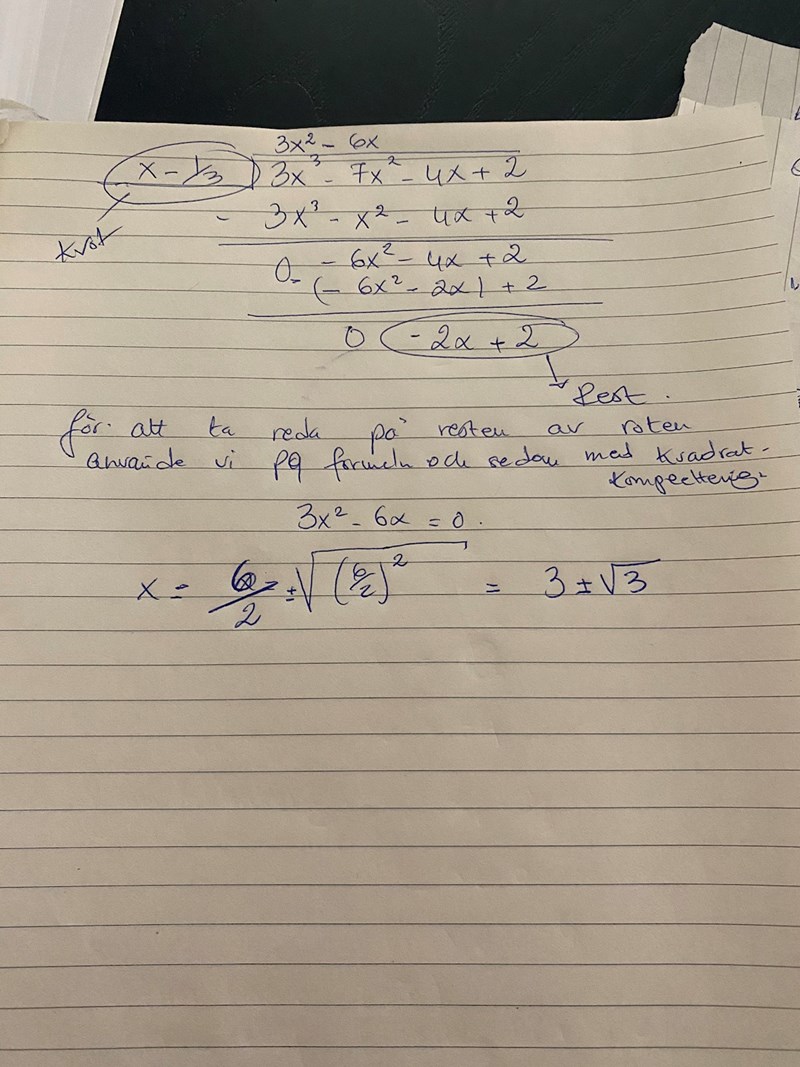 3x² - 6x
x - 1/3 ) 3x³ - 7x² - 4x + 2
- 3x³ - x² - 4x + 2
kvot
0 - 6x² - 4x + 2
- (- 6x² - 2x) + 2
0 - 2x + 2
Rest.
för att ta reda på resten av roten
använde vi PQ formeln och sedan med kvadrat-
kompeltering.
3x² - 6x = 0.
x = 6/2 ± √(6/2)² = 3 ± √3